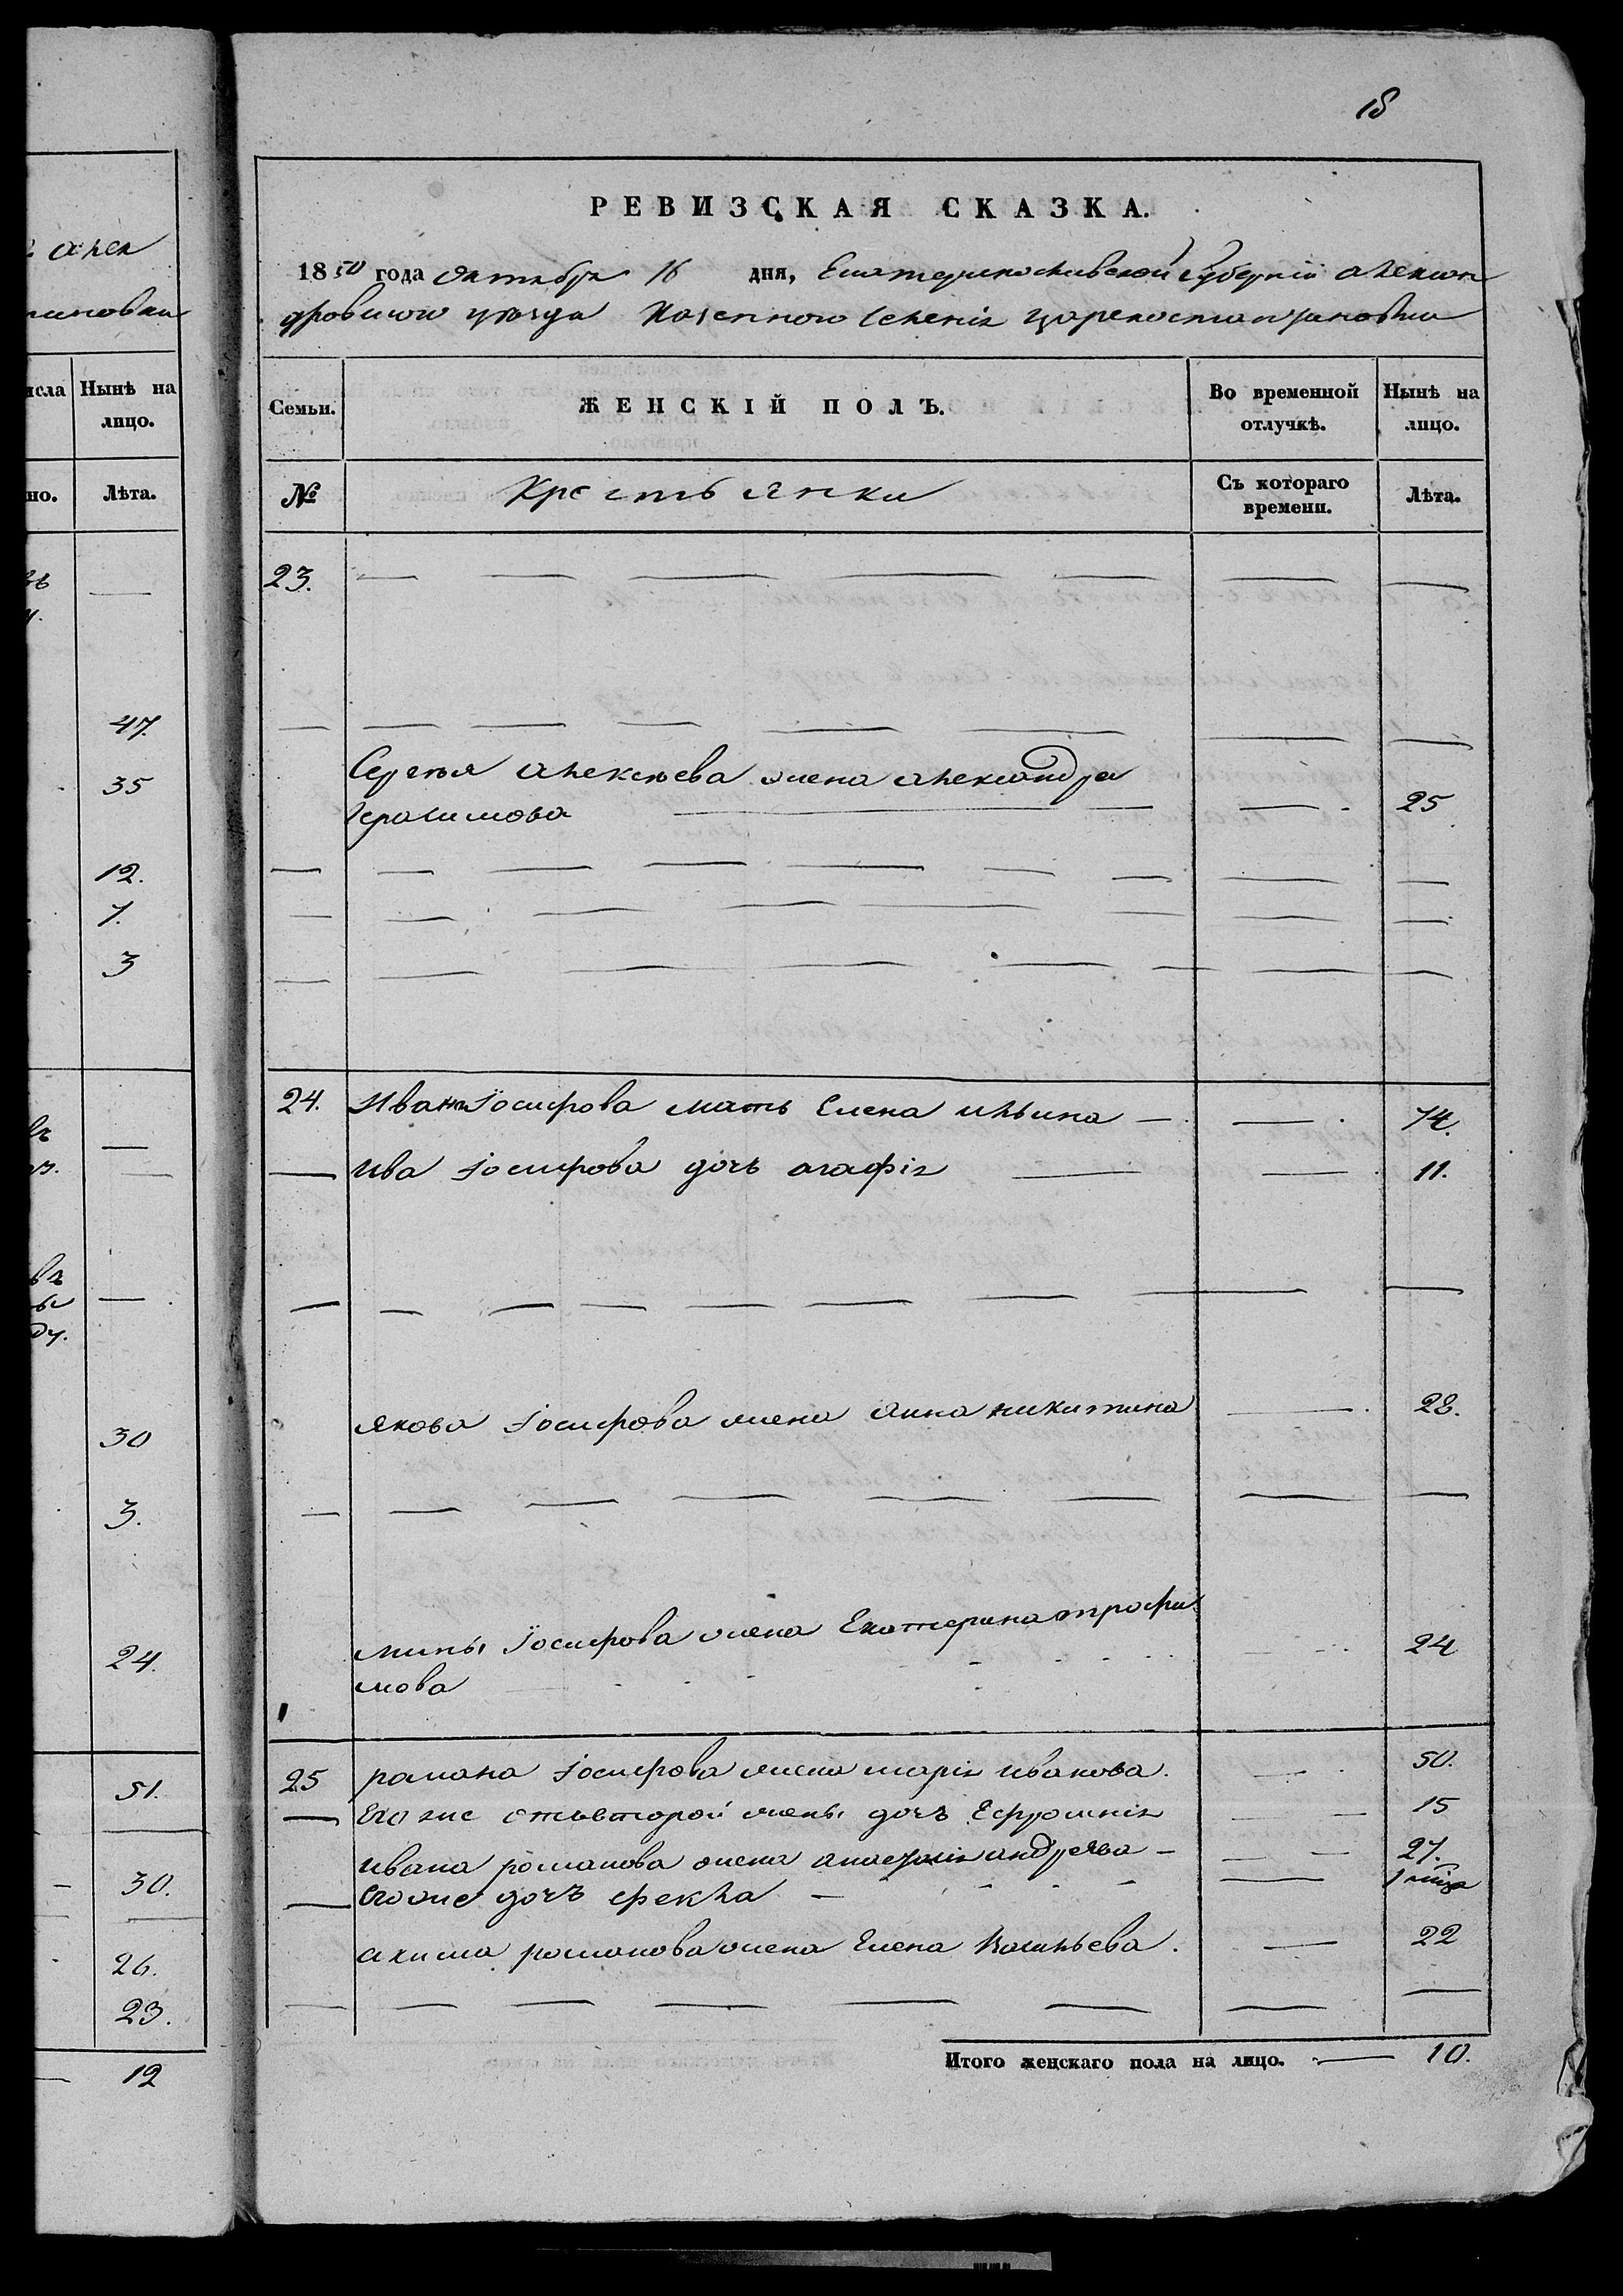 18
РЕВИЗСКАЯ СКАЗКА.
1850 года Октября 16 дня, Екатеринославской Губерніи Алексан
дровского уезда Казенного Селенія Цареконстантиновки
Семьи. ЖЕНСКІЙ ПОЛЪ. Во временной отлучкѣ. Нынѣ на лицо.
№ Крестьянки Съ котораго времени. Лѣта.
23. — — — — — — —
— — — — — — — —
Сергея Алексеева жена Александра
Герасимова — — — 25
— — — — — — — — —
— — — — — — — —
— — — — — — — —
24. Ивана Іосифова мать Елена Ильина — — 74.
— Ива Іосифова дочь Агафія — — 11.
— — — — — — — — —
Якова Іосифова жена Анна Никитина — 28.
— — — — — — — —
Мины Іосифова жена Екатерина Трофи
мова 24
25 Романа Іосифова жена Марія Иванова. — 50.
— Его же отъ второй жены дочь Ефросинія — — 15
Ивана Романова жена Анастасія Андреева — — — 27.
— Его же дочь Фекла — — 1 міца
Акима Романова жена Елена Васильева. — 22
— — — — — — — —
Итого женскаго пола на лицо. — 10.
Алек
тиновки
исла Нынѣ на лицо.
но. Лѣта.
47.
35
12.
7.
3
30
3.
24.
51.
30.
26.
23.
12